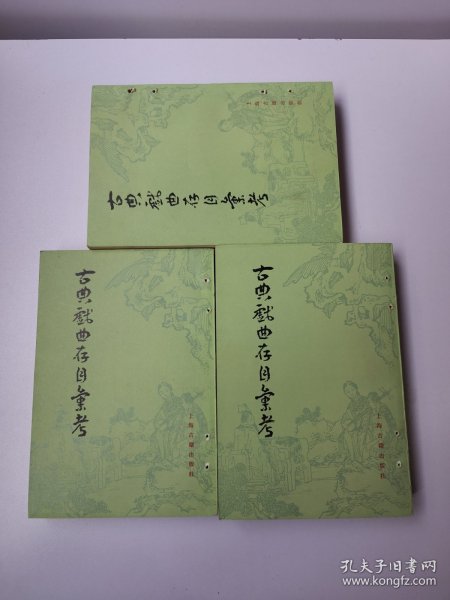 古典戲曲存目彙考
上海古籍出版社
古典戲曲存目彙考
上海古籍出版社
古典戲曲存目彙考
上海古籍出版社
孔夫子旧书网
www.kongfz.com